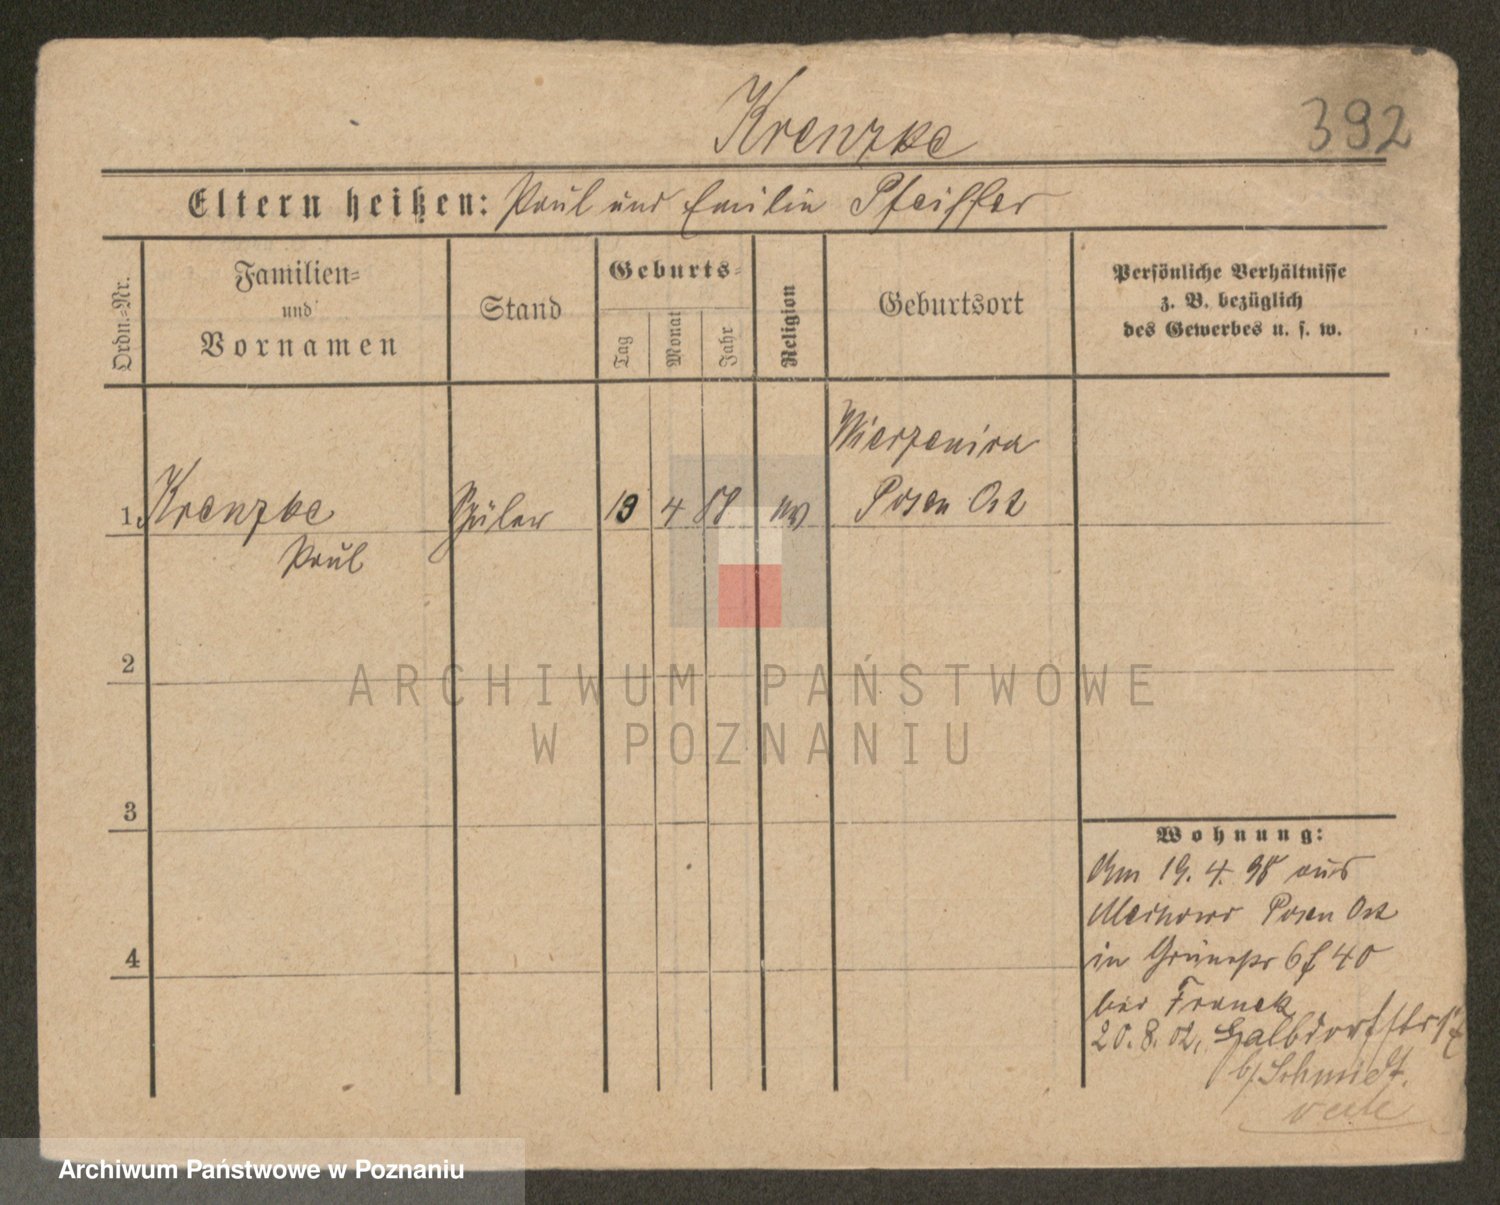 Krenzke
392
Eltern heißen: Paul und Emilie Pfeiffer
Ordn.-Nr.
Familien-
und
Vornamen
Stand
Geburts-
Tag
Monat
Jahr
Religion
Geburtsort
Persönliche Verhältnisse
z. B. bezüglich
des Gewerbes u. s. w.
Wierzenica
1. Krenzke Schüler 13 4 88 ev Posen Ost
Paul
2
3
4
Wohnung:
Am 19. 4. 98 aus
Posen Ost
in Grünestr 6 40
bei Franck
20. 8. 02. Halbdorfstr
b/ Schmidt.
ARCHIWUM PAŃSTWOWE
W POZNANIU
Archiwum Państwowe w Poznaniu